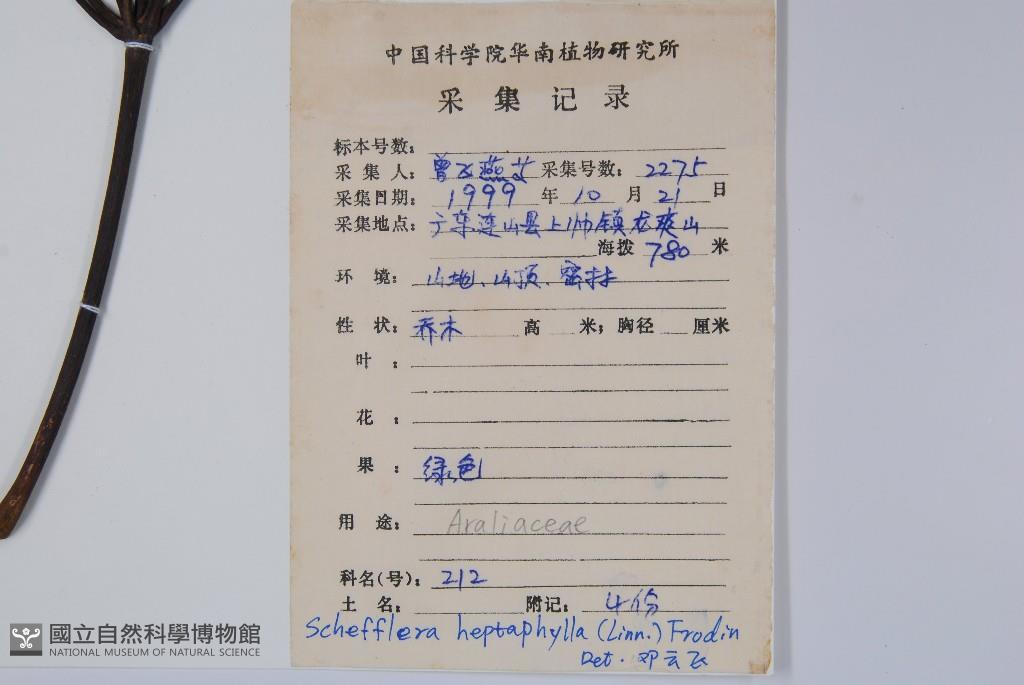 中国科学院华南植物研究所
采集记录
标本号数:
采集人: 曾飞燕等 采集号数: 2275
采集日期: 1999 年 10 月 21 日
采集地点: 广东连山县上帅镇龙爽山
海拨 780 米
环境: 山地、山顶、密林
性状: 乔木 高 米; 胸径 厘米
叶:
花:
果: 绿色
用途: Araliaceae
科名(号): 212
土名: 附记: 4份
Schefflera heptaphylla (Linn.) Frodin
Det. 邓云飞
國立自然科學博物館
NATIONAL MUSEUM OF NATURAL SCIENCE